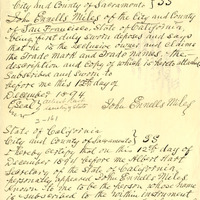 City and County of Sacramento } SS
John Ennells Miles of the City and County
of San Francisco, State of California
being first duly sworn deposes and says
that he is the exclusive owner and claims
the Trade mark and Trade names, the
description and copy of which is hereto attached
Subscribed and sworn to
before me this 12th day of
December 1894
(Seal) John Ennells Miles
State of California
City and County of Sacramento } SS
I hereby certify that on this 12th day of
December 1894 before me Albert Hart
Secretary of the State of California
personally appeared John Ennells Miles
known to me to be the person whose name
is subscribed to the within instrument